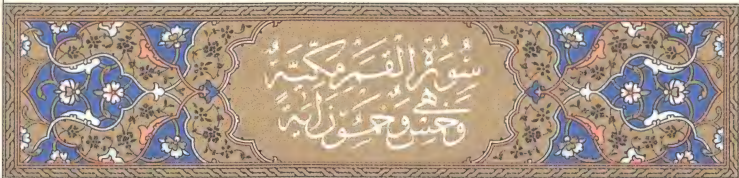 سُورَةُ الْقَمَرِ مَكِّيَّةٌ
وَهِيَ خَمْسٌ وَخَمْسُونَ آيَةً